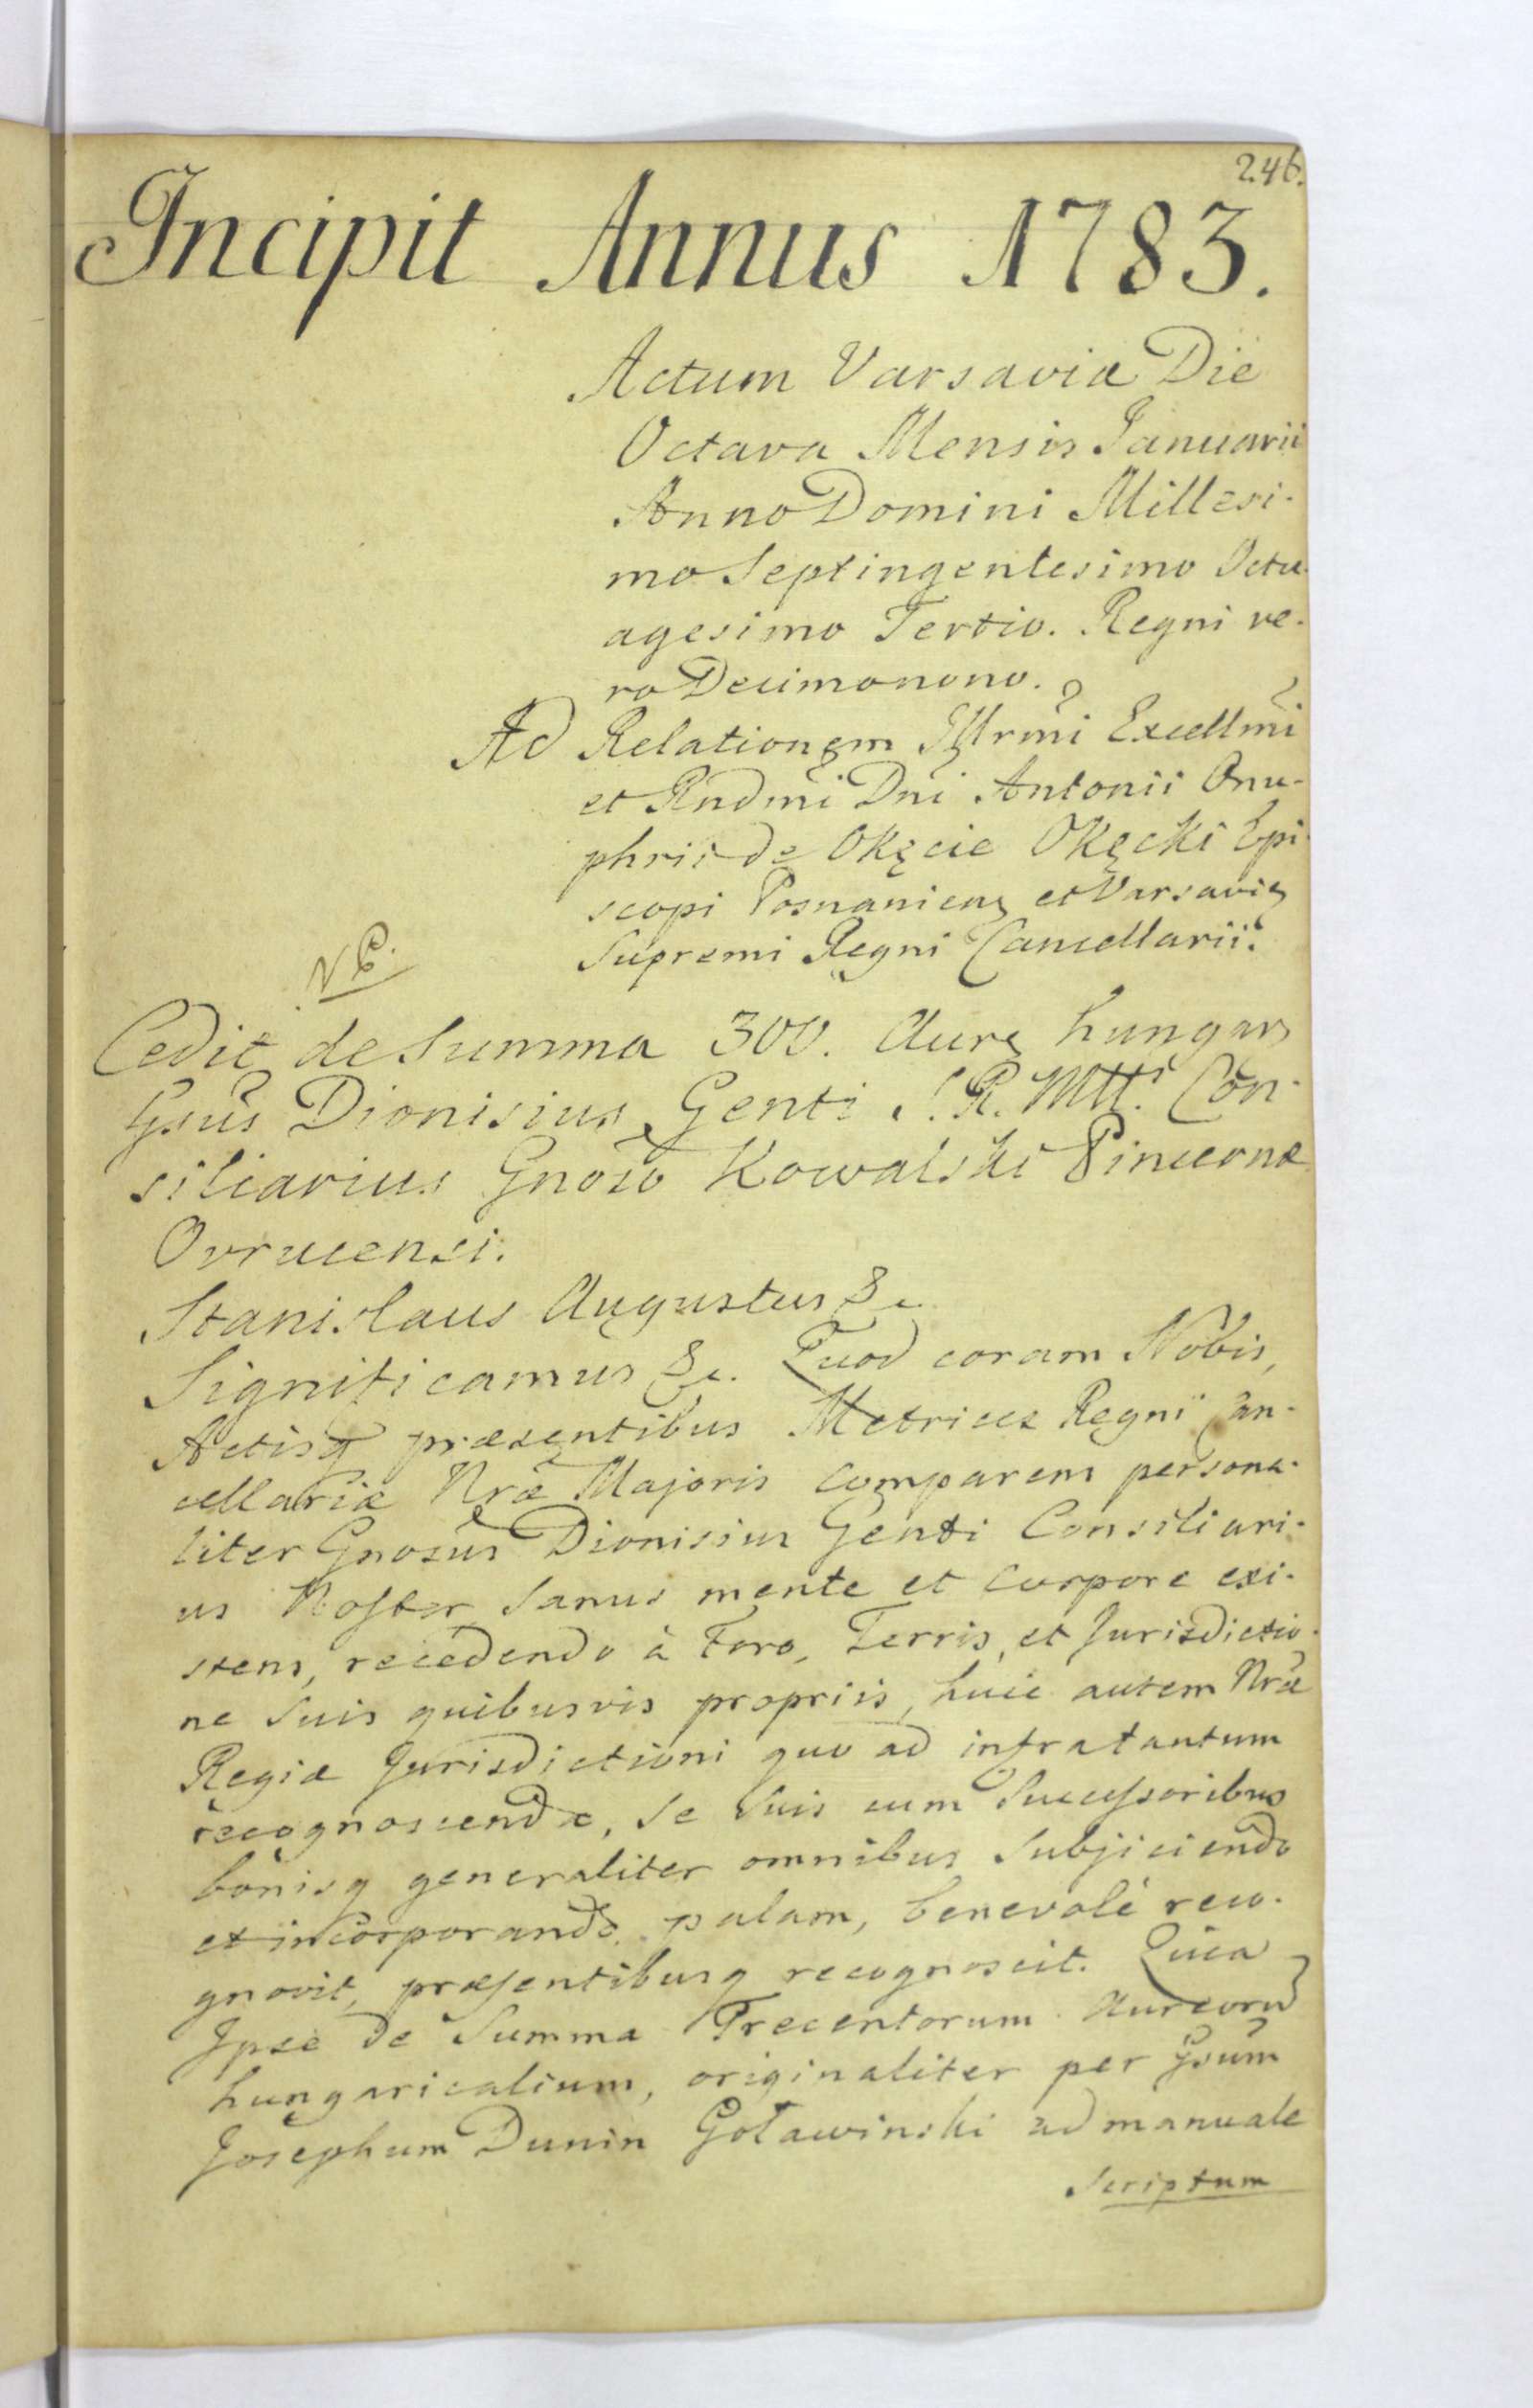 246.
Incipit Annus 1783.
Actum Varsaviæ Die
Octava Mensis Januarii
Anno Domini Millesi-
mo Septingentesimo Octu-
agesimo Tertio. Regni ve-
ro Decimonono.
Ad Relationem Illrmi Excellmi
et Rndmi Dni Antonii Onu-
phrii de Okęcie Okęcki Epi-
scopi Posnanien, et Varsavię
Supremi Regni Cancellarii.
Cedit de Summa 300. Aure, hungar,
Gsus Dionisius Genti S. R. Mtti Con-
siliarius Gnoso Kowalski Pincernæ
Ovrucensi.
Stanislaus Augustus &c.
Significamus &c. Quod coram Nobis,
Actisq præsentibus Metrices Regni Can-
cellariæ Nræ Majoris comparens persona-
liter Gnosus Dionisius Genti Consiliari-
us Noster sanus mente et corpore exi-
stens, recedendo à Foro, Terris, et Jurisdictio-
ne suis quibusvis propriis, huic autem Nræ
Regiæ Jurisdictioni quo ad infra tantum
recognoscendæ, se suis cum Successoribus
bonisq generaliter omnibus Subjiciendo
et incorporando, palam, benevolè reco-
gnovit, præsentibusq recognoscit. Quia
Ipse de Summa Trecentorum Aureoru
hungaricalium, originaliter per Gsum
Josephum Dunin Goławinski ad manuale
Scriptum